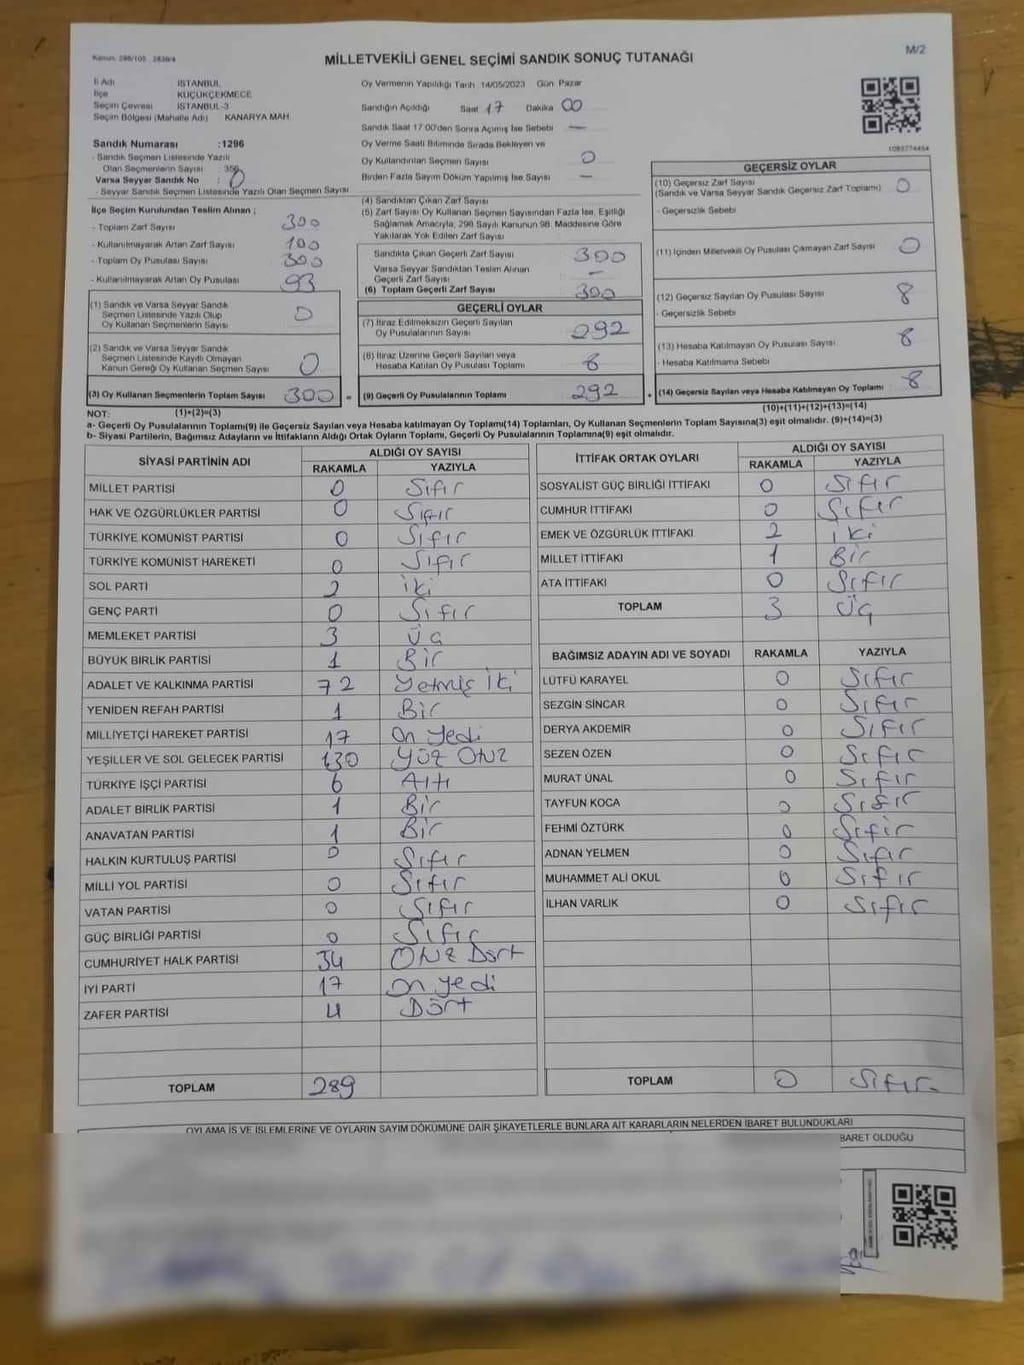 Kanun: 298/105 2839/4
M/2
MİLLETVEKİLİ GENEL SEÇİMİ SANDIK SONUÇ TUTANAĞI
İl Adı İSTANBUL
İlçe KÜÇÜKÇEKMECE
Seçim Çevresi İSTANBUL-3
Seçim Bölgesi (Mahalle Adı) KANARYA MAH.
Sandık Numarası :1296
- Sandık Seçmen Listesinde Yazılı
Olan Seçmenlerin Sayısı : 356
Varsa Seyyar Sandık No : 0
- Seyyar Sandık Seçmen Listesinde Yazılı Olan Seçmen Sayısı
Oy Vermenin Yapıldığı Tarih 14/05/2023 Gün Pazar
Sandığın Açıldığı Saat 17 Dakika 00
Sandık Saat 17:00'den Sonra Açılmış İse Sebebi —
Oy Verme Saati Bitiminde Sırada Bekleyen ve
Oy Kullandırılan Seçmen Sayısı 0
Birden Fazla Sayım Döküm Yapılmış İse Sayısı —
1093774454
İlçe Seçim Kurulundan Teslim Alınan ;
- Toplam Zarf Sayısı 300
- Kullanılmayarak Artan Zarf Sayısı 100
- Toplam Oy Pusulası Sayısı 300
- Kullanılmayarak Artan Oy Pusulası 93
(1) Sandık ve Varsa Seyyar Sandık
Seçmen Listesinde Yazılı Olup
Oy Kullanan Seçmenlerin Sayısı 0
(2) Sandık ve Varsa Seyyar Sandık
Seçmen Listesinde Kayıtlı Olmayan
Kanun Gereği Oy Kullanan Seçmen Sayısı 0
(3) Oy Kullanan Seçmenlerin Toplam Sayısı 300 =
(4) Sandıktan Çıkan Zarf Sayısı
(5) Zarf Sayısı Oy Kullanan Seçmen Sayısından Fazla İse, Eşitliği
Sağlamak Amacıyla, 298 Sayılı Kanunun 98. Maddesine Göre
Yakılarak Yok Edilen Zarf Sayısı
Sandıkta Çıkan Geçerli Zarf Sayısı 300
Varsa Seyyar Sandıktan Teslim Alınan
Geçerli Zarf Sayısı —
(6) Toplam Geçerli Zarf Sayısı 300
GEÇERLİ OYLAR
(7) İtiraz Edilmeksizin Geçerli Sayılan
Oy Pusulalarının Sayısı 292
(8) İtiraz Üzerine Geçerli Sayılan veya
Hesaba Katılan Oy Pusulası Toplamı 8
(9) Geçerli Oy Pusulalarının Toplamı 292 +
GEÇERSİZ OYLAR
(10) Geçersiz Zarf Sayısı
(Sandık ve Varsa Seyyar Sandık Geçersiz Zarf Toplamı) 0
- Geçersizlik Sebebi
(11) İçinden Milletvekili Oy Pusulası Çıkmayan Zarf Sayısı 0
(12) Geçersiz Sayılan Oy Pusulası Sayısı 8
- Geçersizlik Sebebi
(13) Hesaba Katılmayan Oy Pusulası Sayısı 8
- Hesaba Katılmama Sebebi
(14) Geçersiz Sayılan veya Hesaba Katılmayan Oy Toplamı 8
NOT: (1)+(2)=(3) (10)+(11)+(12)+(13)=(14)
a- Geçerli Oy Pusulalarının Toplamı(9) ile Geçersiz Sayılan veya Hesaba katılmayan Oy Toplamı(14) Toplamları, Oy Kullanan Seçmenlerin Toplam Sayısına(3) eşit olmalıdır. (9)+(14)=(3)
b- Siyasi Partilerin, Bağımsız Adayların ve İttifakların Aldığı Ortak Oyların Toplamı, Geçerli Oy Pusulalarının Toplamına(9) eşit olmalıdır.
SİYASİ PARTİNİN ADI ALDIĞI OY SAYISI
RAKAMLA YAZIYLA
MİLLET PARTİSİ 0 Sıfır
HAK VE ÖZGÜRLÜKLER PARTİSİ 0 Sıfır
TÜRKİYE KOMÜNİST PARTİSİ 0 Sıfır
TÜRKİYE KOMÜNİST HAREKETİ 0 Sıfır
SOL PARTİ 2 iki
GENÇ PARTİ 0 Sıfır
MEMLEKET PARTİSİ 3 Üç
BÜYÜK BİRLİK PARTİSİ 1 Bir
ADALET VE KALKINMA PARTİSİ 72 Yetmiş İki
YENİDEN REFAH PARTİSİ 1 Bir
MİLLİYETÇİ HAREKET PARTİSİ 17 On Yedi
YEŞİLLER VE SOL GELECEK PARTİSİ 130 YÜZ OTUZ
TÜRKİYE İŞÇİ PARTİSİ 6 Altı
ADALET BİRLİK PARTİSİ 1 Bir
ANAVATAN PARTİSİ 1 Bir
HALKIN KURTULUŞ PARTİSİ 0 Sıfır
MİLLİ YOL PARTİSİ 0 Sıfır
VATAN PARTİSİ 0 Sıfır
GÜÇ BİRLİĞİ PARTİSİ 0 Sıfır
CUMHURİYET HALK PARTİSİ 34 OTUZ Dört
İYİ PARTİ 17 On yedi
ZAFER PARTİSİ 4 Dört
TOPLAM 289
İTTİFAK ORTAK OYLARI ALDIĞI OY SAYISI
RAKAMLA YAZIYLA
SOSYALİST GÜÇ BİRLİĞİ İTTİFAKI 0 Sıfır
CUMHUR İTTİFAKI 0 Sıfır
EMEK VE ÖZGÜRLÜK İTTİFAKI 2 iki
MİLLET İTTİFAKI 1 Bir
ATA İTTİFAKI 0 Sıfır
TOPLAM 3 Üç
BAĞIMSIZ ADAYIN ADI VE SOYADI RAKAMLA YAZIYLA
LÜTFÜ KARAYEL 0 Sıfır
SEZGİN SİNCAR 0 Sıfır
DERYA AKDEMİR 0 Sıfır
SEZEN ÖZEN 0 Sıfır
MURAT ÜNAL 0 Sıfır
TAYFUN KOCA 0 Sıfır
FEHMİ ÖZTÜRK 0 Sıfır
ADNAN YELMEN 0 Sıfır
MUHAMMET ALİ OKUL 0 Sıfır
İLHAN VARLIK 0 Sıfır
TOPLAM 0 Sıfır
OYLAMA İŞ VE İŞLEMLERİNE VE OYLARIN SAYIM DÖKÜMÜNE DAİR ŞİKAYETLERLE BUNLARA AİT KARARLARIN NELERDEN İBARET BULUNDUKLARI
BARET OLDUĞU